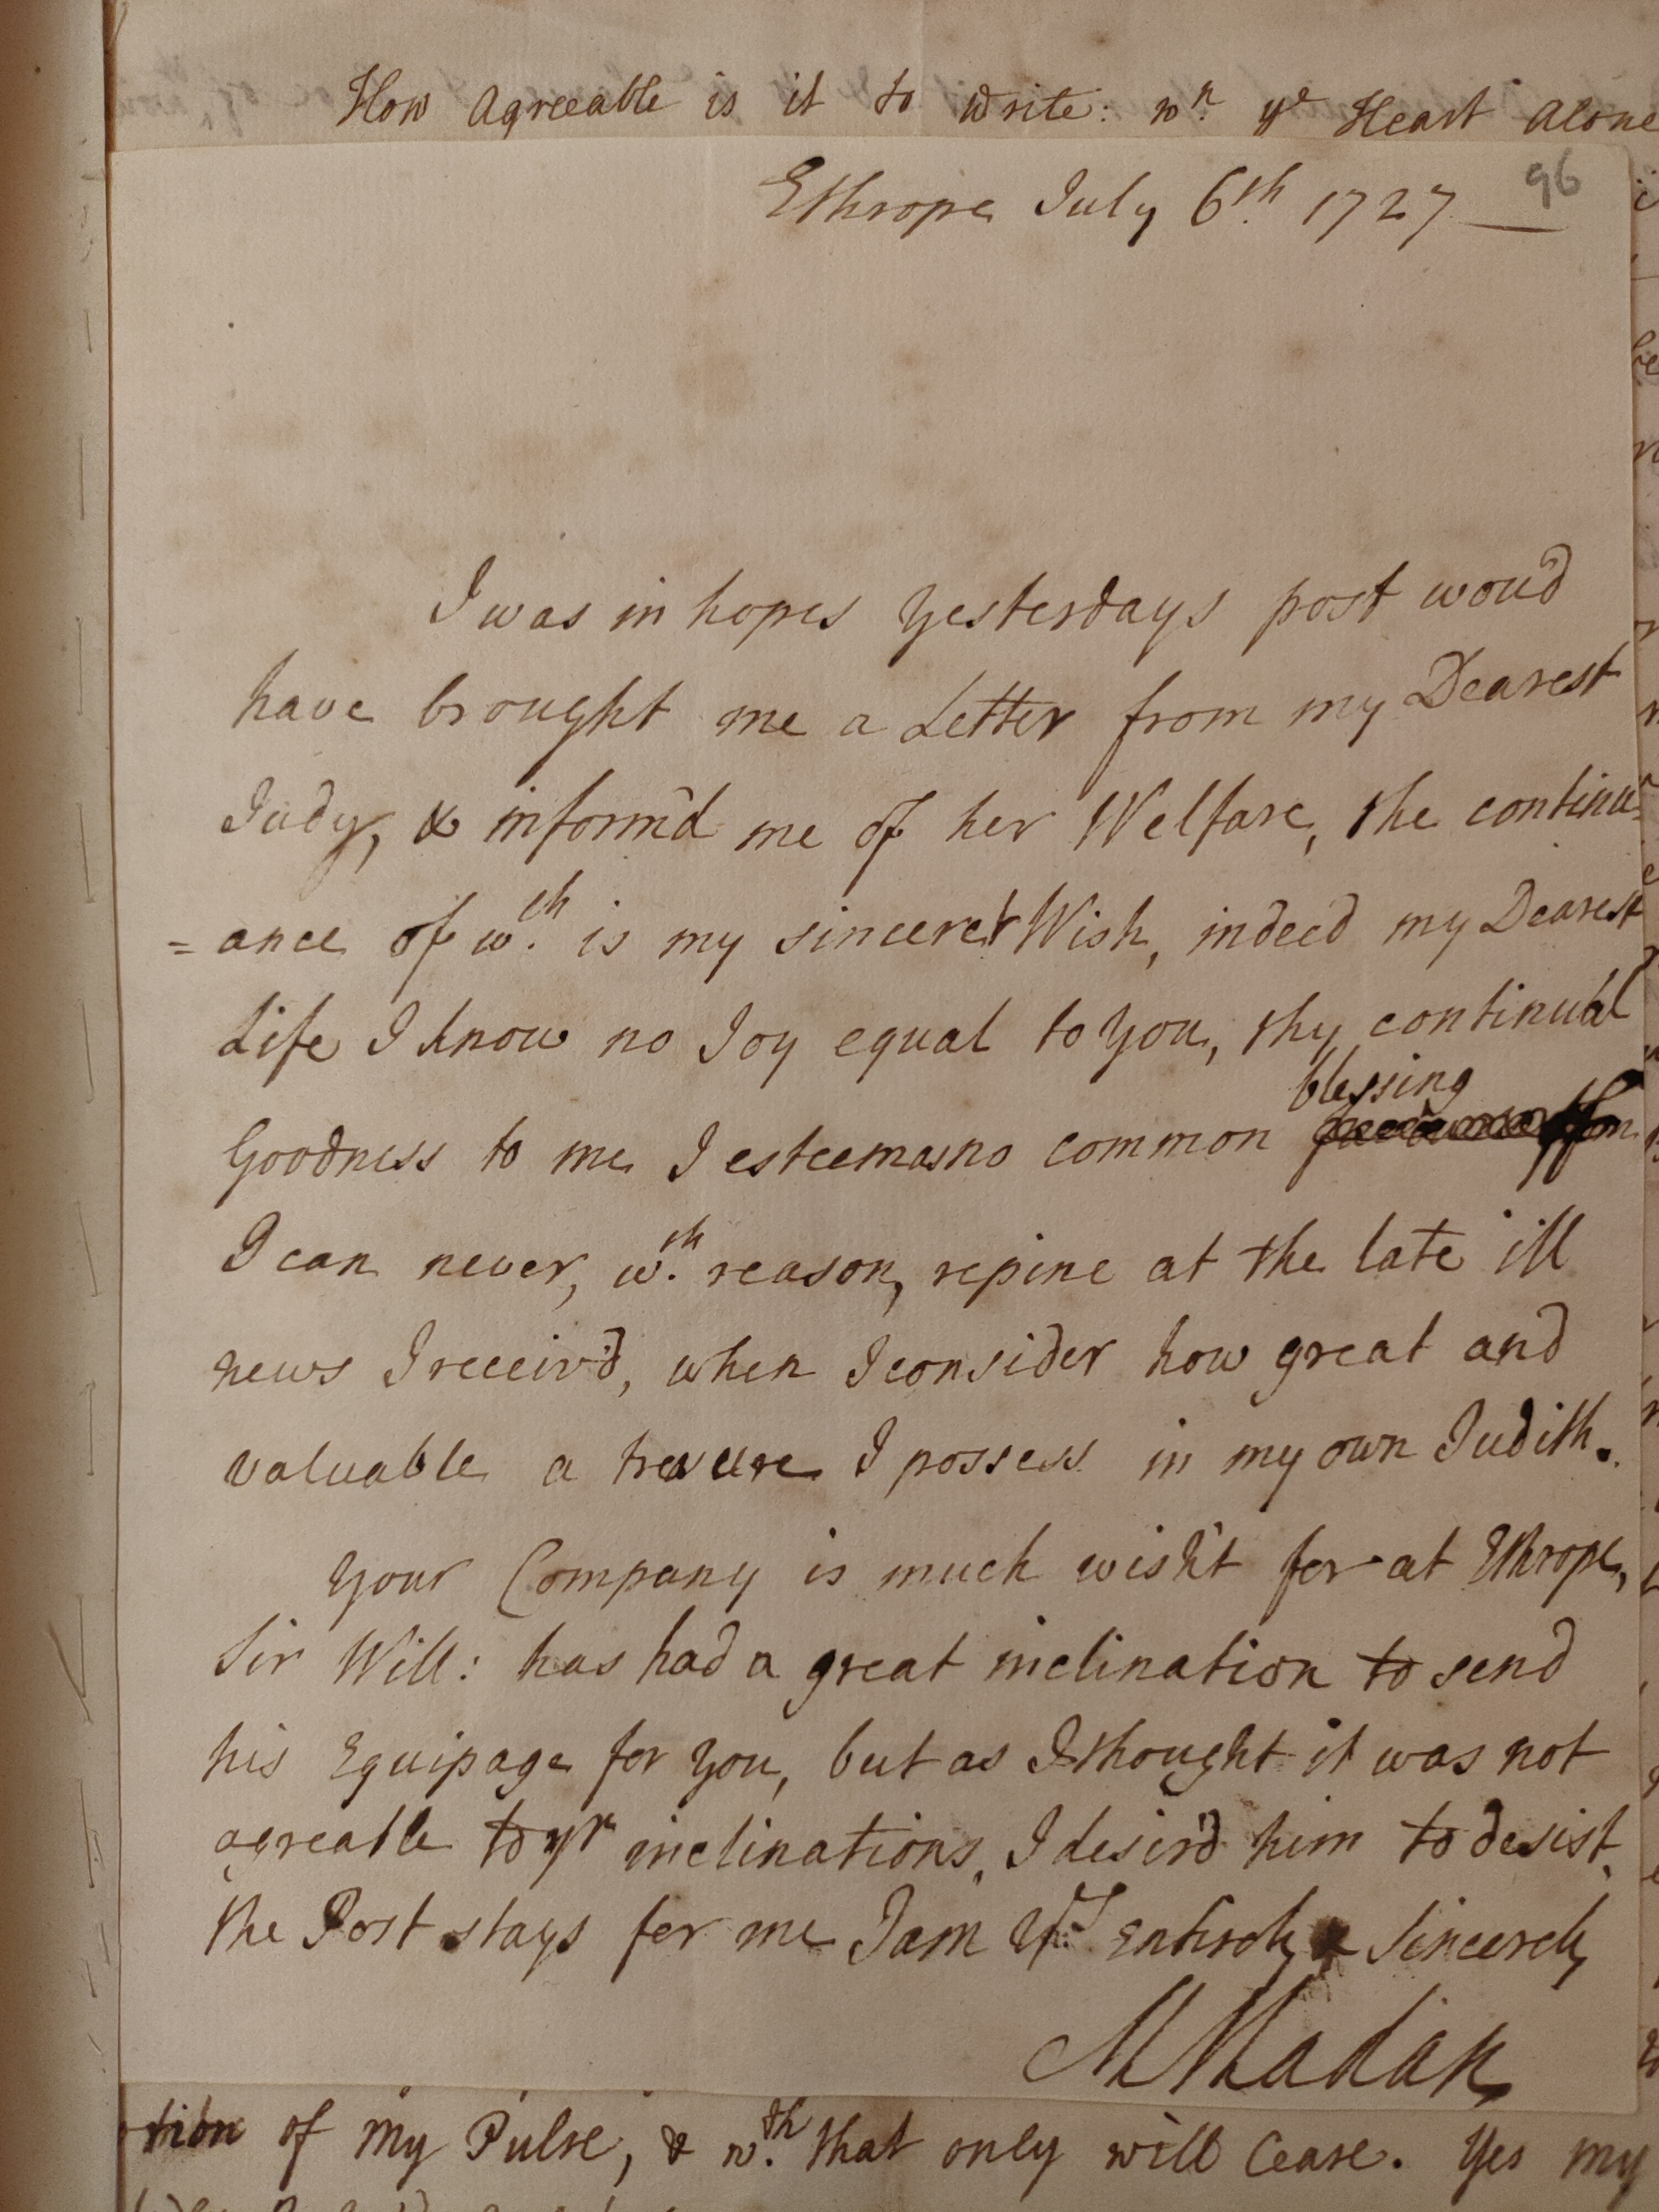 How Agreeable is it to write: wn ye Heart Alone
96
Ethrope July 6th 1727
I was in hopes yesterdays post wou'd
have brought me a Letter from my Dearest
Judy, & inform'd me of her Welfare, the continu=
=ance of wch is my sincerest Wish, indeed my Dearest
Life I know no Joy equal to you, thy continual
blessing
Goodness to me I esteem as no common
I can never, wth reason, repine at the late ill
news I receiv'd, when I consider how great and
valuable a treasure I possess in my own Judith.
Your Company is much wish't for at Ethrope,
Sir Will: has had a great inclination to send
his Equipage for you, but as I thought it was not
agreable to yr inclinations, I desir'd him to desist.
the Post stays for me I am yrs Entirely & Sincerely
M Madan
tion of my Pulse, & wth that only will Cease. Yes my